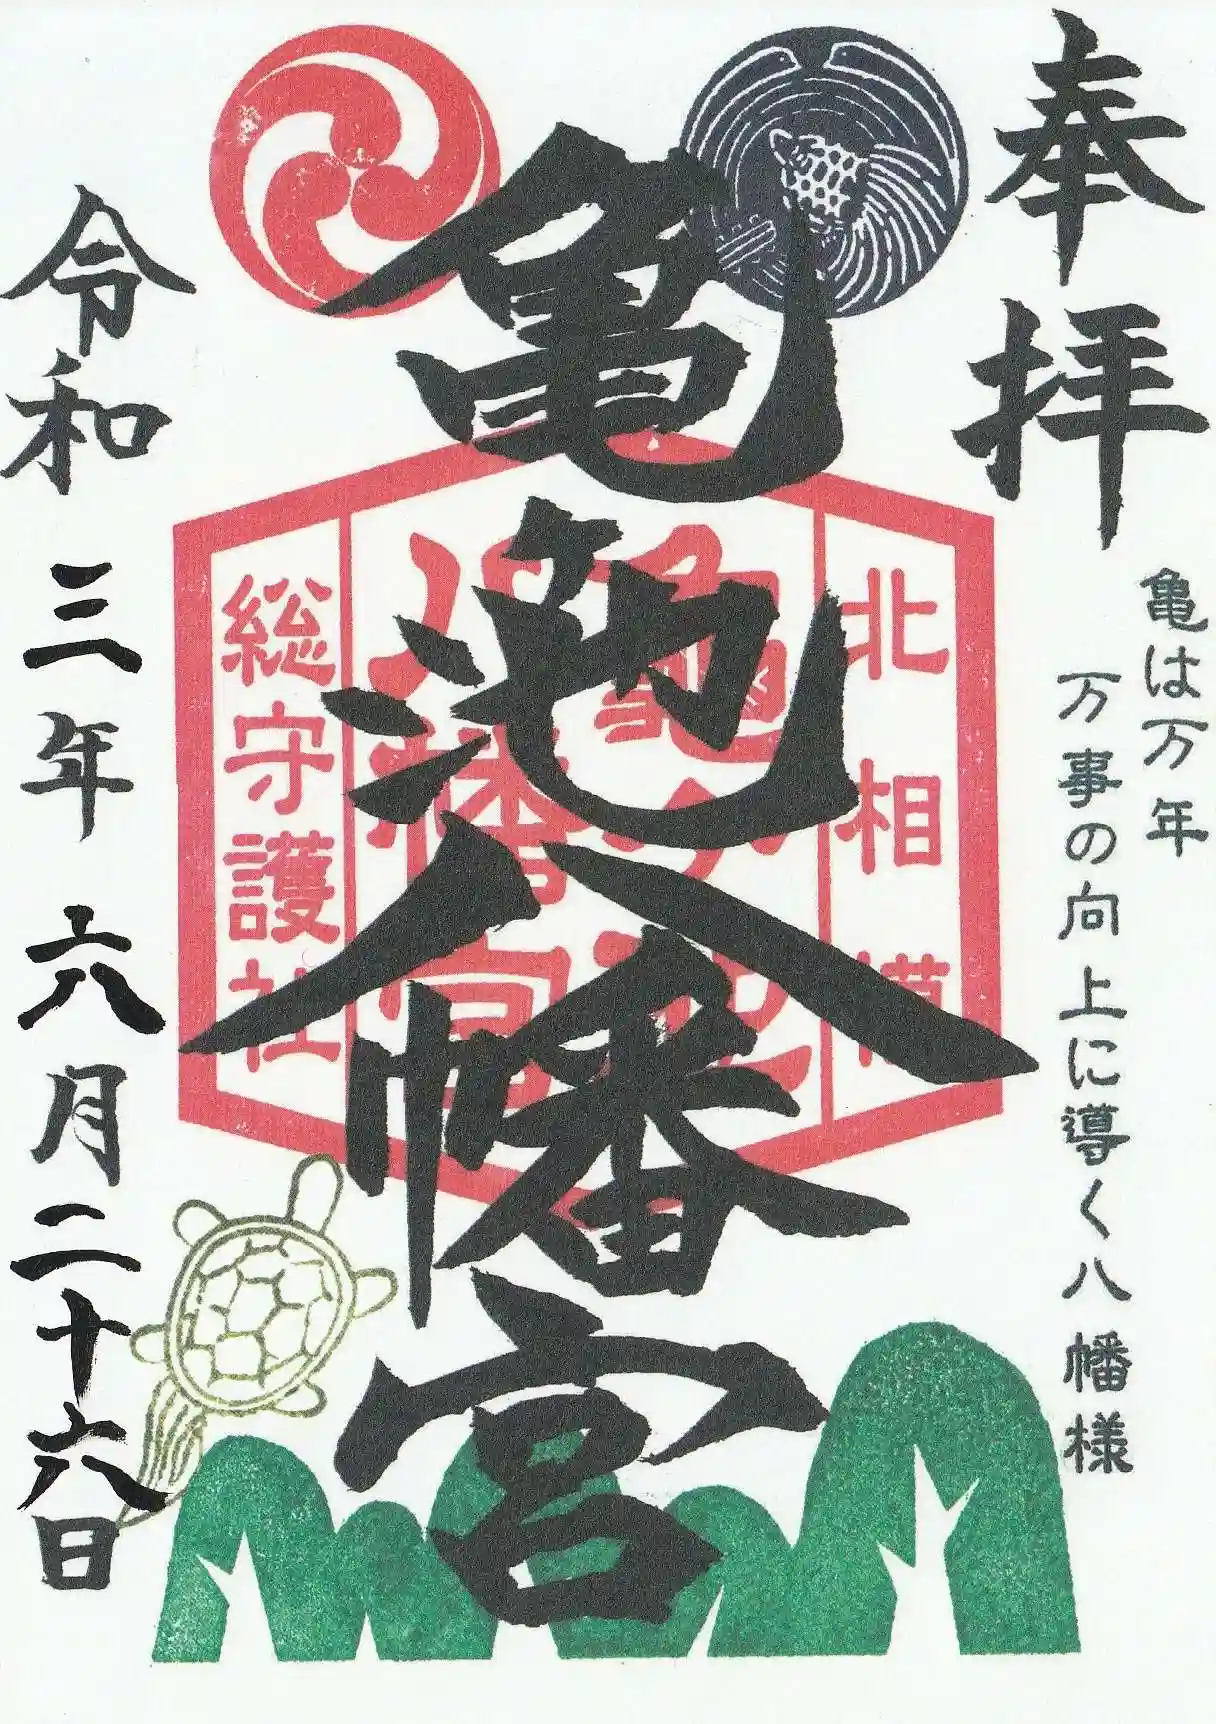 奉拝
亀は万年
万事の向上に導く八幡様
亀池八幡宮
北相模
亀ヶ池
八幡宮
総守護社
令和三年六月二十六日